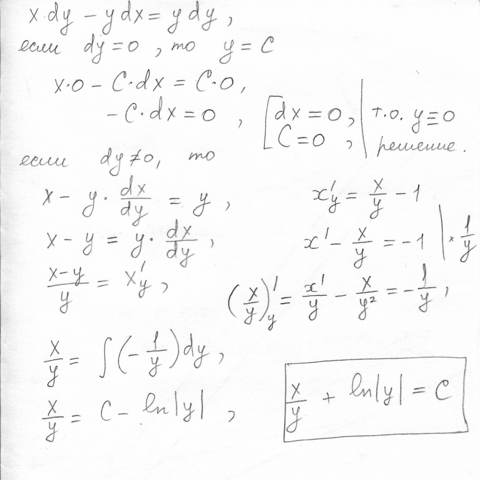 x·dy − y dx = y dy,
если dy=0, то y=C
x·0 − C·dx = C·0,
−C·dx=0, [dx=0, C=0, | т.о. y≡0 решение.
если dy≠0, то
x − y·dx/dy = y,
x − y = y·dx/dy,
(x−y)/y = x'_y,
x'_y = x/y − 1
x' − x/y = −1 | × 1/y
(x/y)'_y = x'/y − x/y² = −1/y,
x/y = ∫(−1/y)dy,
x/y = C − ln|y|,
x/y + ln|y| = C